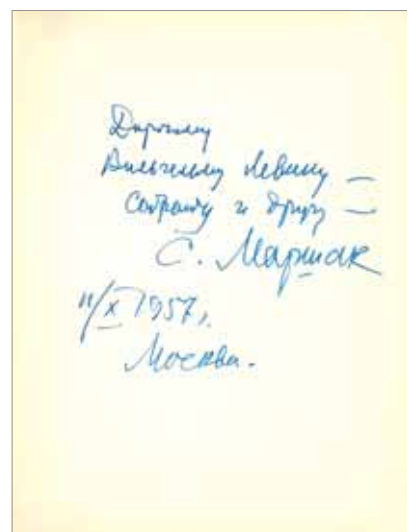 Дорогому
Вильгельму Левику —
собрату и другу —
С. Маршак
11/X 1957 г.
Москва.